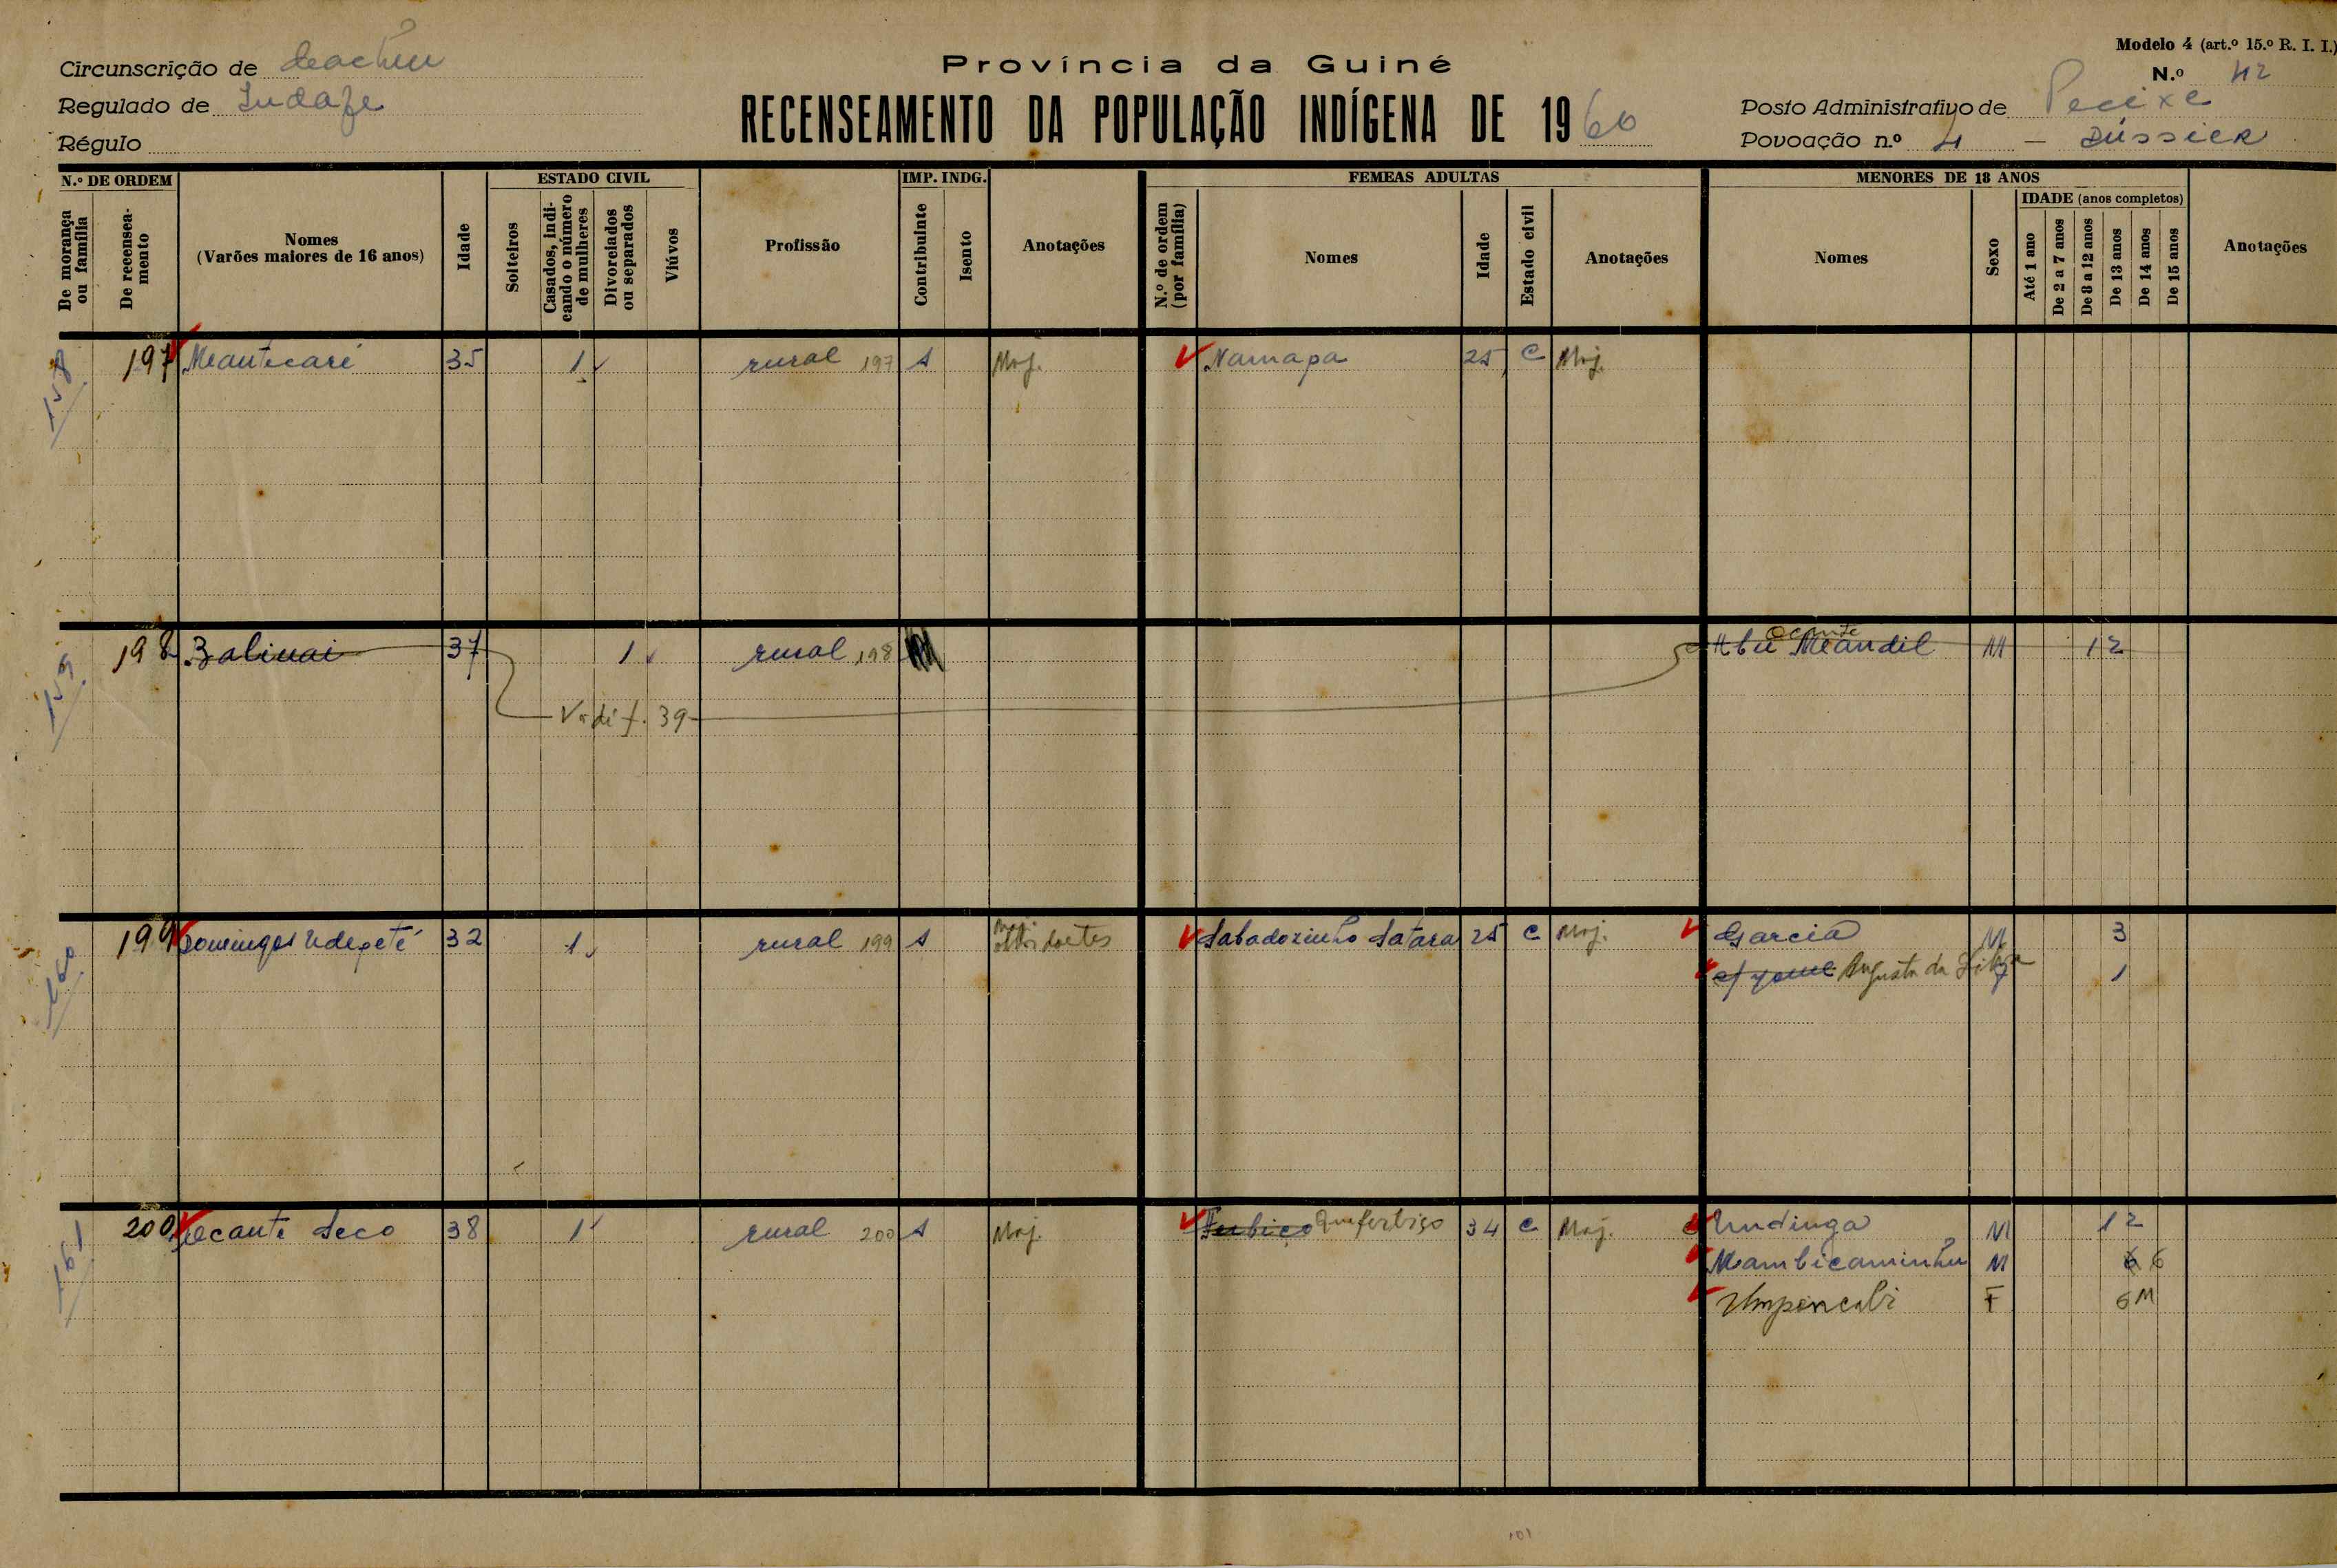 Província da Guiné
RECENSEAMENTO DA POPULAÇÃO INDÍGENA DE 1960
Modelo 4 (art.º 15.º R. I. I.)
N.º 42
Circunscrição de Cacheu
Regulado de
Régulo
Posto Administrativo de Pecixe
Povoação n.º 4 –
N.º DE ORDEM
De morança ou família
De recenseamento
Nomes
(Varões maiores de 16 anos)
Idade
ESTADO CIVIL
Solteiros
Casados, indicando o número de mulheres
Divorciados ou separados
Viúvos
Profissão
IMP. INDG.
Contribuinte
Isento
Anotações
FEMEAS ADULTAS
N.º de ordem (por família)
Nomes
Idade
Estado civil
Anotações
MENORES DE 18 ANOS
Nomes
Sexo
IDADE (anos completos)
Até 1 ano
De 2 a 7 anos
De 8 a 12 anos
De 13 anos
De 14 anos
De 15 anos
Anotações
158 197 35 1 rural 197 1 Maj. Namapa 25 C Maj.
159 198 Balinai 37 1 rural 198 M 12
f. 39
160 199 Domingos 32 1 rural 199 1 Sabadozinho Satara 25 C Maj. Garcia M 3
Augusta da 1
161 200 Seco 38 1 rural 200 1 Maj. 34 C Maj. Undinga M 12
M 6 6
F 6 M
101